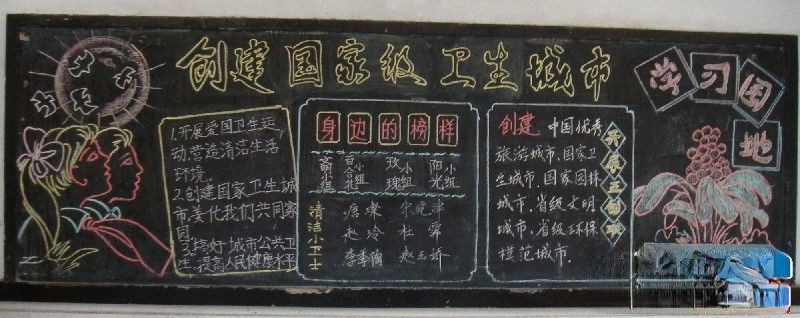 创建国家级卫生城市
学习园地
1.开展爱国卫生运
动,营造清洁生活
环境.
2.创建国家卫生城
市,美化我们共同家
园.
3.搞好城市公共卫
生,提高人民健康水平
身边的榜样
百合花小组
玫瑰小组
阳光小组
清洁小卫士
唐
赵玲
杜
赵玉娇
创建 中国优秀
旅游城市、国家卫
生城市、国家园林
城市、省级文明
城市、省级环保
模范城市.
开展三创